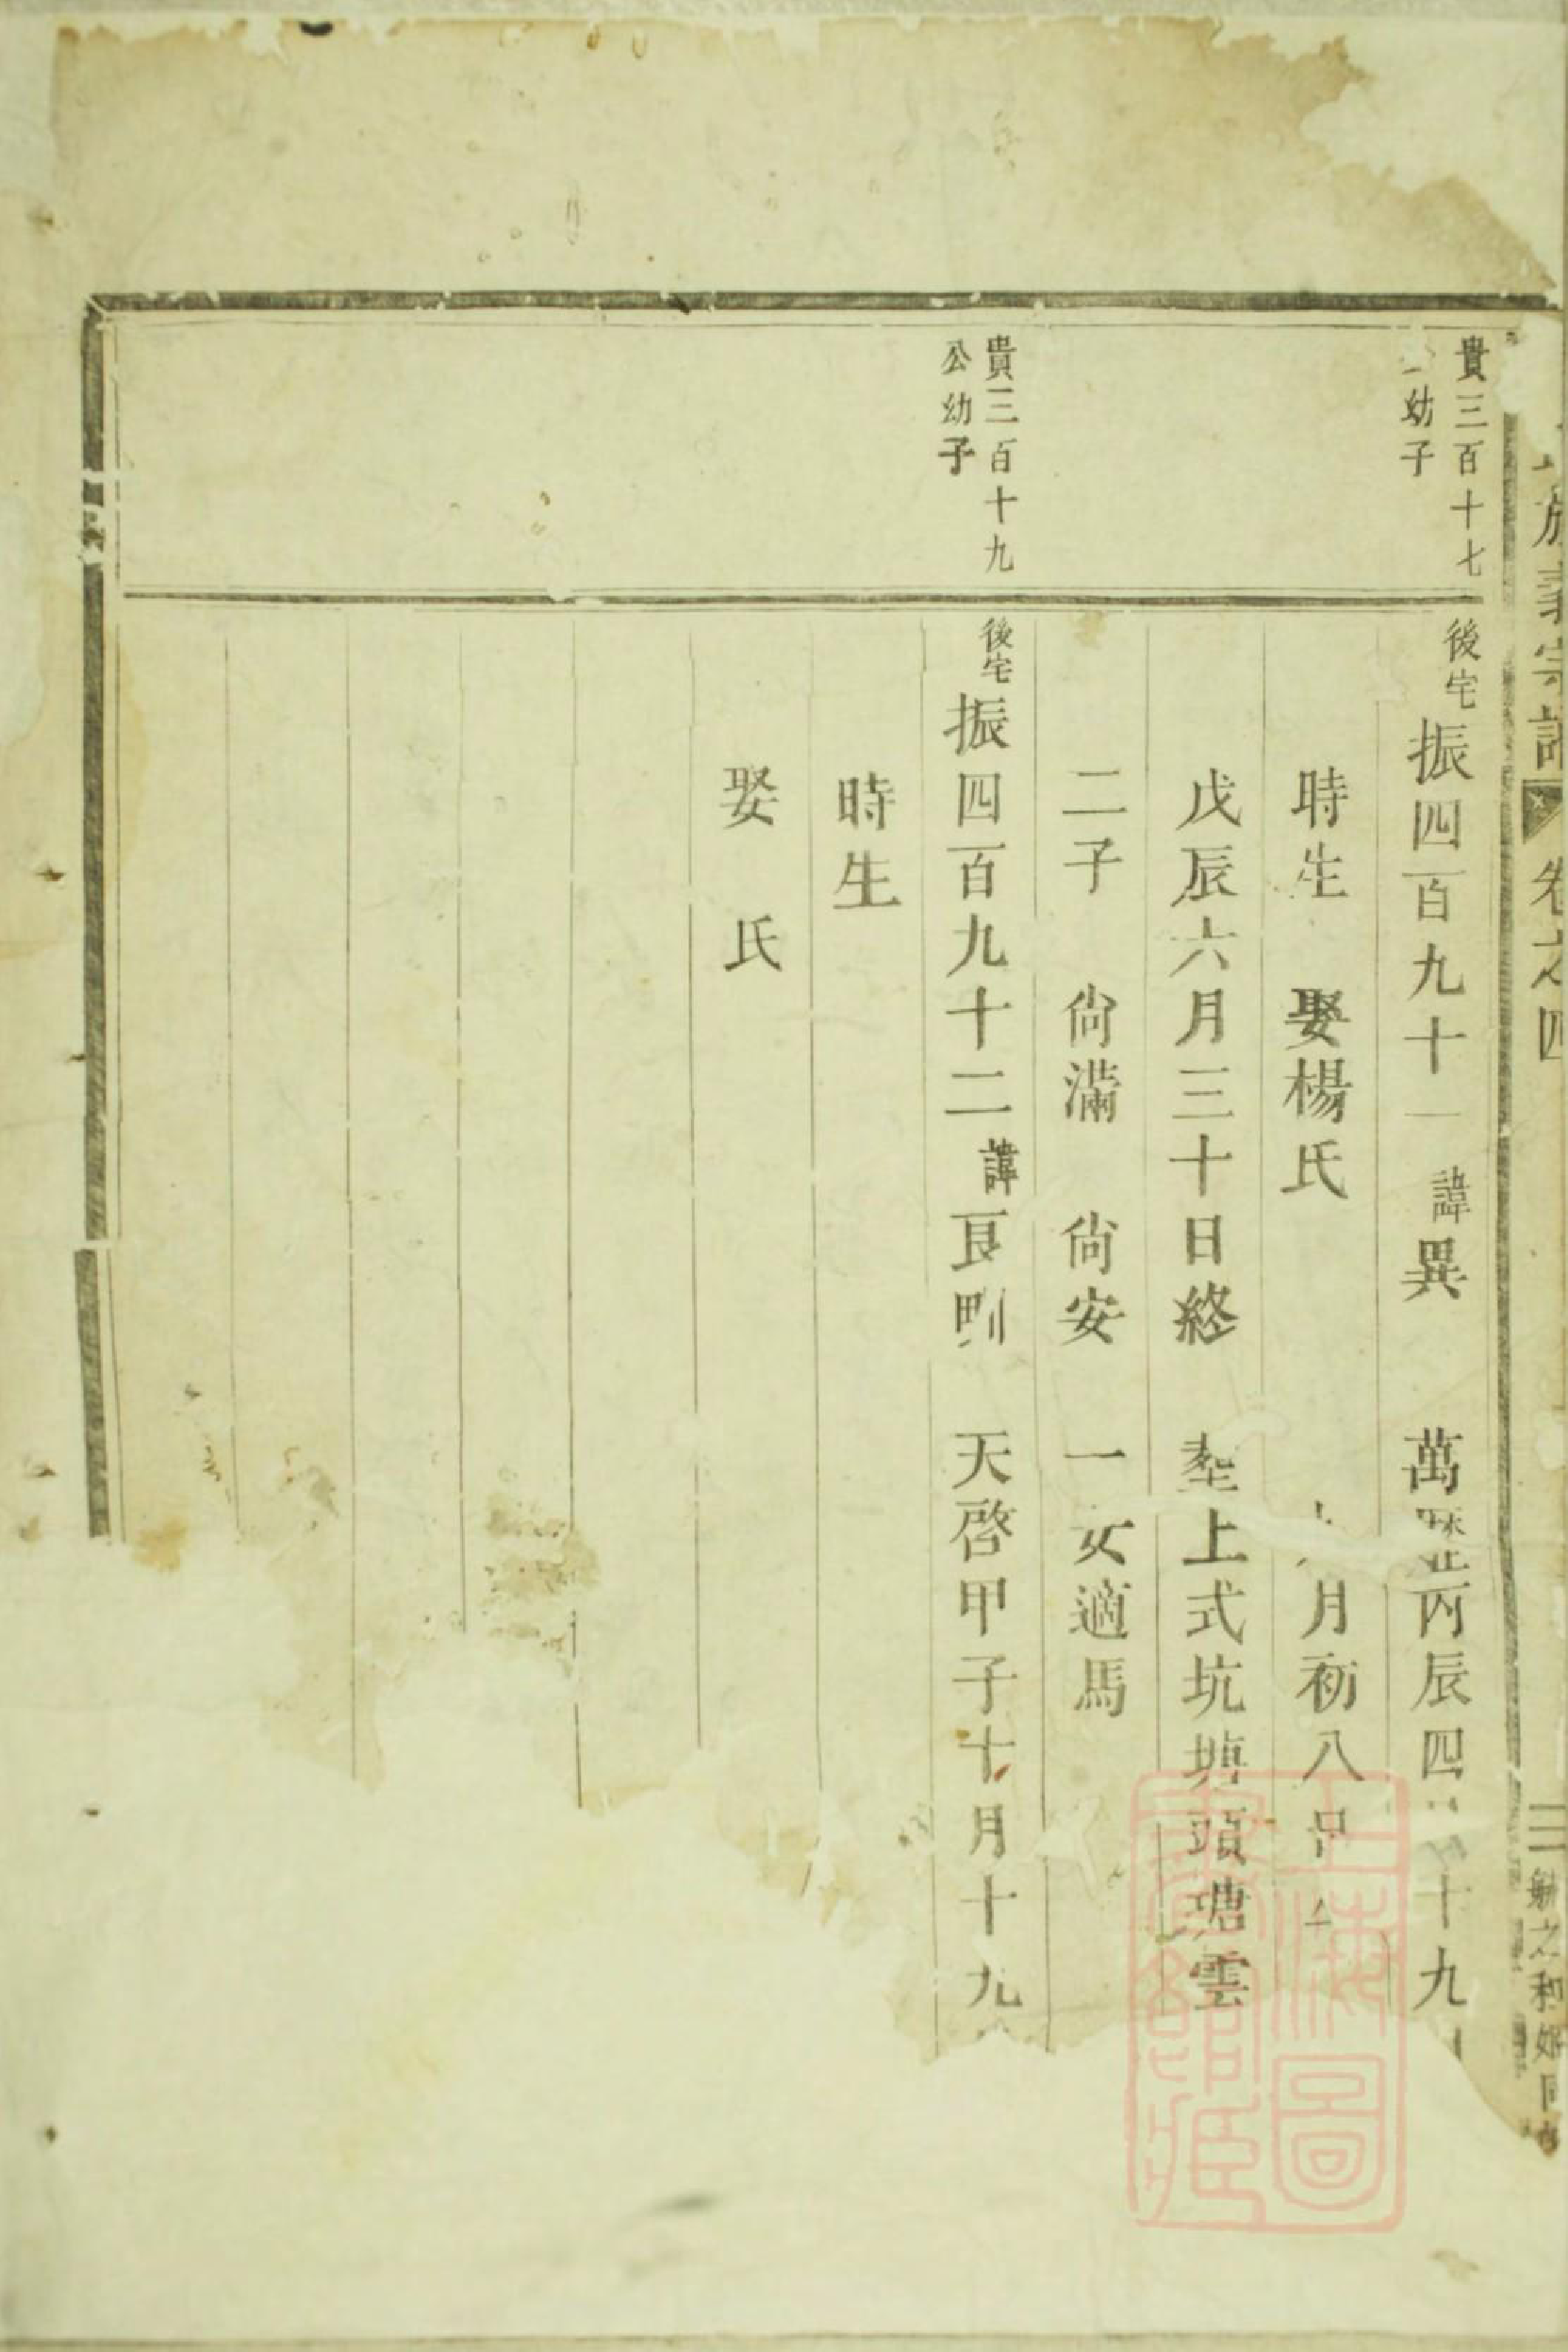 族義宗譜 卷之四
貴三百十七
幼子
後宅振四百九十一 諱異 萬歷丙辰四 十九
時生 娶楊氏 月初八
戊辰六月三十日終 塟上式坑塘頭塘雲
二子 尙滿 尙安 一女適馬
貴三百十九
公幼子
後宅振四百九十二 諱良 天啓甲子十月十九
時生
娶 氏
上海圖
書館藏